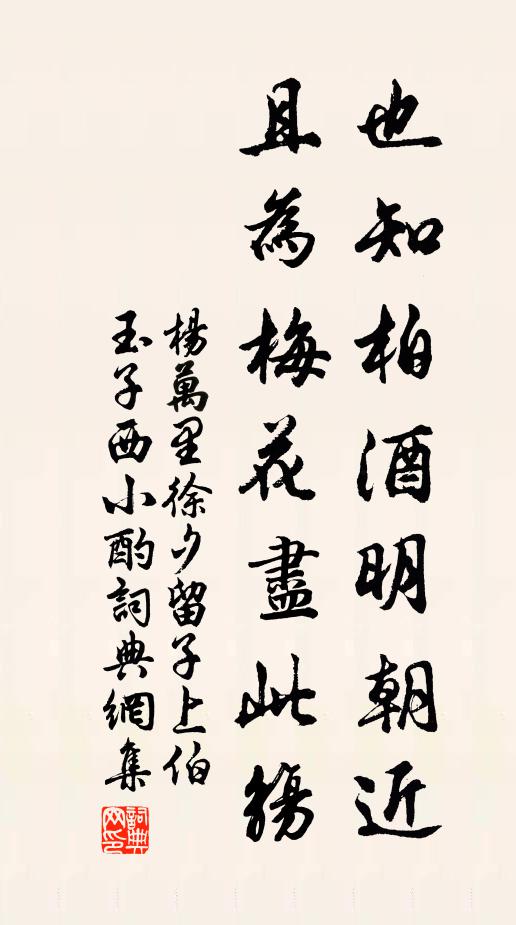 也知柏酒明朝近
且為梅花盡此觴
楊萬里徐夕留子上伯
玉子西小酌詞典網集
詞典網印